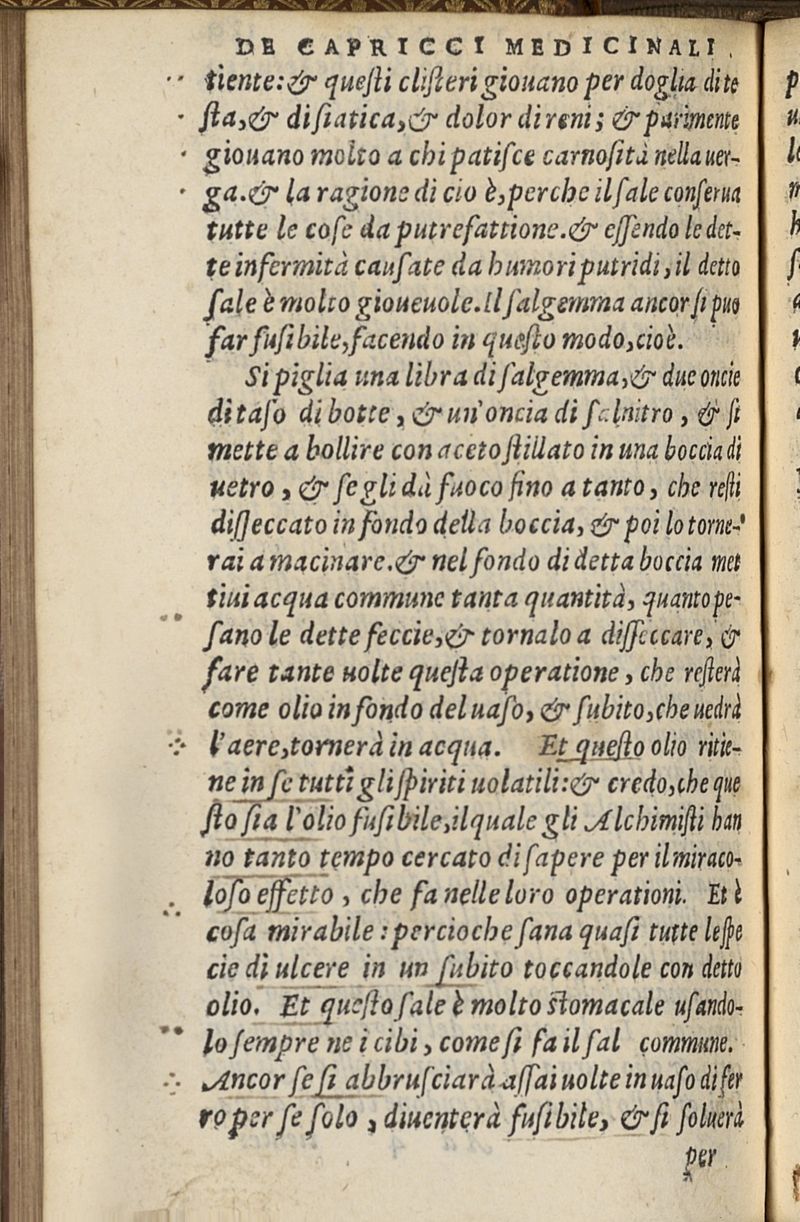 DE CAPRICCI MEDICINALI.
tiente: & queſti cliſteri giouano per doglia di te
ſta, & di ſiatica, & dolor di reni; & parimente
giouano molto a chi patiſce carnoſità nella uer-
ga. & la ragione di cio è, perche il ſale conſerua
tutte le coſe da putrefattione. & eſſendo le det-
te infermità cauſate da humori putridi, il detto
ſale è molto gioueuole. Il ſalgemma ancor ſi puo
far fuſibile, facendo in queſto modo, cioè.
Si piglia una libra di ſalgemma, & due oncie
di taſo di botte, & un'oncia di ſalnitro, & ſi
mette a bollire con aceto ſtillato in una boccia di
uetro, & ſe gli dà fuoco fino a tanto, che reſti
diſſeccato in fondo della boccia, & poi lo torne-
rai a macinare. & nel fondo di detta boccia met
tiui acqua commune tanta quantità, quanto pe-
ſano le dette feccie, & tornalo a diſſeccare, &
fare tante uolte queſta operatione, che reſterà
come olio in fondo del uaſo, & ſubito, che uedrà
l'aere, tornerà in acqua. Et queſto olio ritie-
ne in ſe tutti gli ſpiriti uolatili: & credo, che que
ſto ſia l'olio fuſibile, il quale gli Alchimiſti han
no tanto tempo cercato di ſapere per il miraco-
loſo effetto, che fa nelle loro operationi. Et è
coſa mirabile: percioche ſana quaſi tutte le ſpe
cie di ulcere in un ſubito toccandole con detto
olio. Et queſto ſale è molto ſtomacale uſando-
lo ſempre ne i cibi, come ſi fa il ſal commune.
Ancor ſe ſi abbruſciarà aſſai uolte in uaſo di fer
ro per ſe ſolo, diuenterà fuſibile, & ſi ſoluerà
per